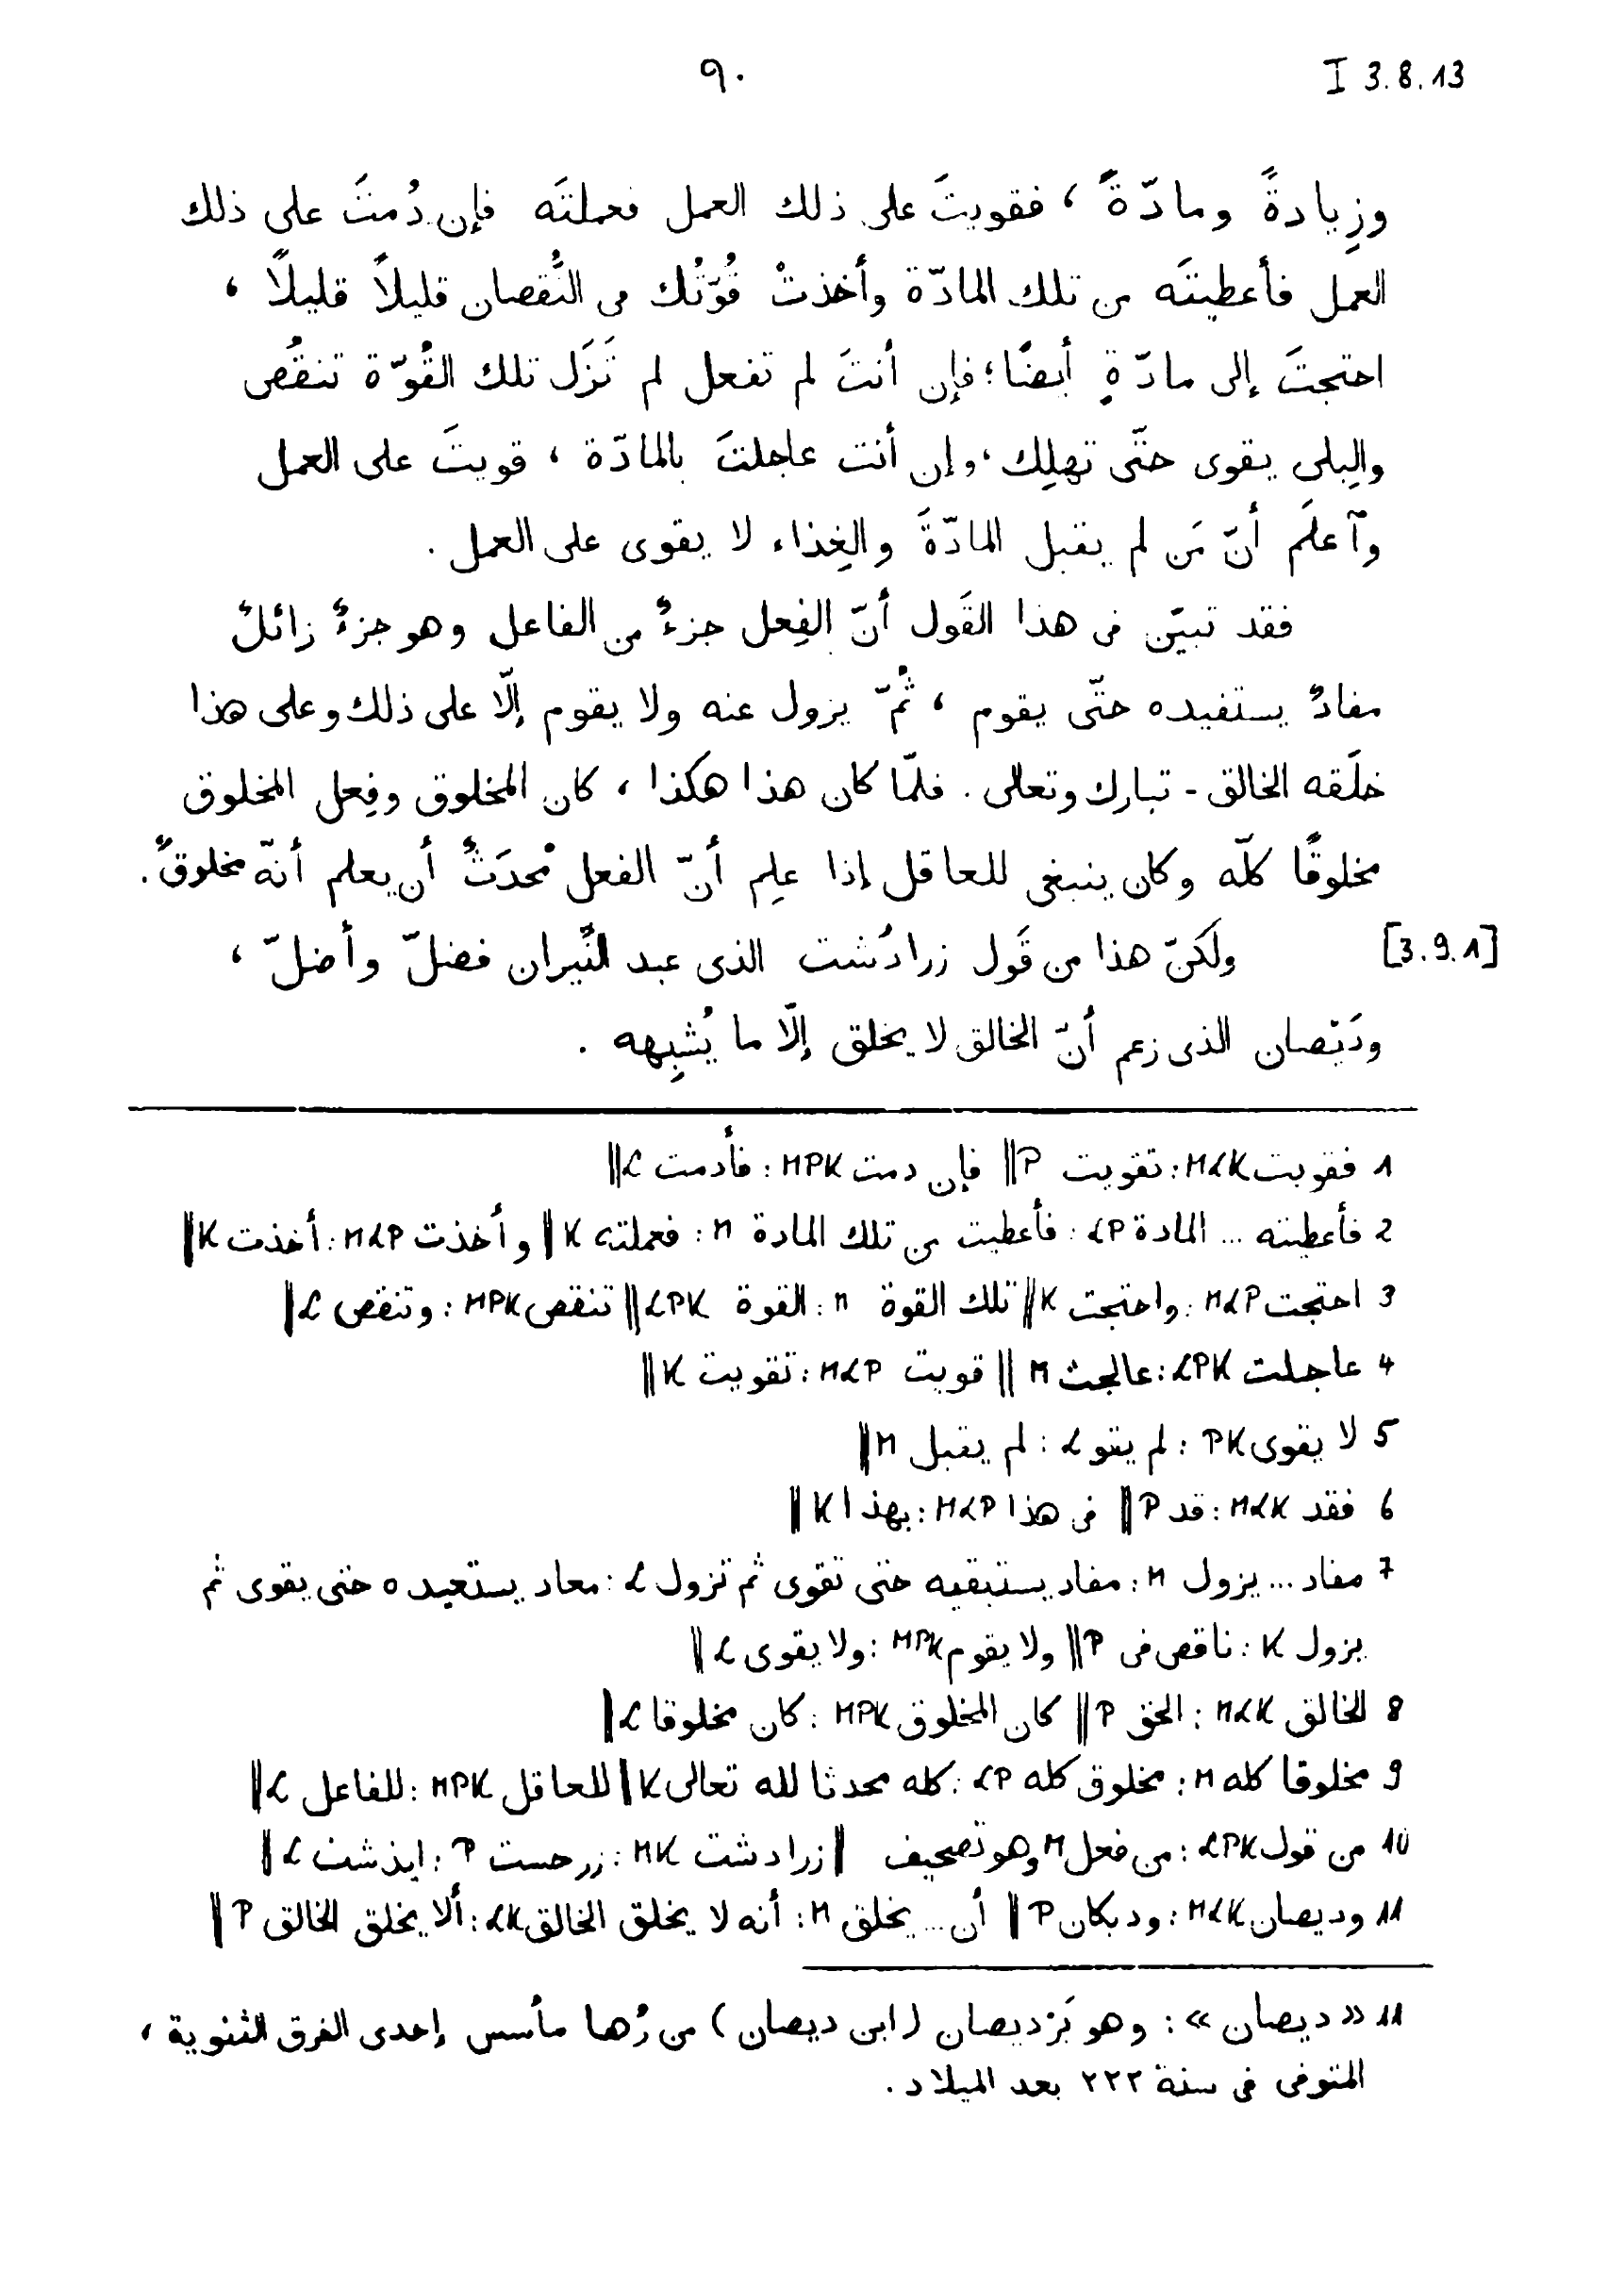 I 3.8.13
٩٠
وزِيادةً ومادّةً ، فقويتَ على ذلك العمل فعملتَه فإن دُمتَ على ذلك
العمل فأعطيتَه من تلك المادّة وأخذتْ قُوّتُك فى النُّقصان قليلاً قليلًا ،
احتجتَ إلى مادّةٍ أيضًا؛ فإن أنتَ لم تفعل لم تَزَل تلك القُوّة تنقُص
والبِلى يقوى حتّى تهلِك ،وإن أنت عاجلتَ بالمادّة ، قويتَ على العمل
وٱعلَم أنّ مَن لم يقبل المادّةَ والغِذاء لا يقوى على العمل .
فقد تبيّن فى هذا القَول أنّ الفِعل جزءٌ من الفاعل وهو جزءٌ زائلٌ
مفادٌ يستفيده حتّى يقوم ، ثُمّ يزول عنه ولا يقوم إلّا على ذلك وعلى هذا
خلَقه الخالق - تبارك وتعالى . فلمّا كان هذا هكذا ، كان المخلوق وفِعل المخلوق
مخلوقًا كلّه وكان ينبغى للعاقل إذا علِم أنّ الفعل مُحدَثٌ أن يعلم أنّه مخلوقٌ .
[3.9.1] ولكنّ هذا من قَول زرادُشت الذى عبد النِّيران فضلّ وأضلّ ،
ودَيْصان الذى زعم أنّ الخالق لا يخلق إلّا ما يُشبِهه .
1 فقويت MLK: تقويت P || فإن دمت MPK : فأدمت L ||
2 فأعطيته ... المادة LP : فأعطيت من تلك المادة M : فعملته K || وأخذت MLP : أخذت K ||
3 احتجت MLP : واحتجت K || تلك القوة M : القوة LPK || تنقص MPK : وتنقص L ||
4 عاجلت LPK : عالجت M || قويت MLP : تقويت K ||
5 لا يقوى PK : لم يقو L : لم يقبل M ||
6 فقد MLK : قد P || فى هذا MLP : بهذا K ||
7 مفاد ... يزول M : مفاد يستبقيه حتى تقوى ثم تزول L : معاد يستعيده حتى يقوى ثم
يزول K : ناقص فى P || ولا يقوم MPK : ولا يقوى L ||
8 الخالق MLK : الحق P || كان المخلوق MPK : كان مخلوقا L ||
9 مخلوقا كله M : مخلوق كله LP : كله محدثا لله تعالى K || للعاقل MPK : للفاعل L ||
10 من قول LPK : من فعل M وهو تصحيف || زرادشت MK : زرحست P : ايذشت L ||
11 وديصان MLK : وديكان P || أن ... يخلق M : أنه لا يخلق الخالق LK : ألا يخلق الخالق P ||
11 «ديصان» : وهو بَرْديصان (ابن ديصان) من رُها مأسس إحدى الفرق الثنوية ،
المتوفى فى سنة ٢٢٢ بعد الميلاد .